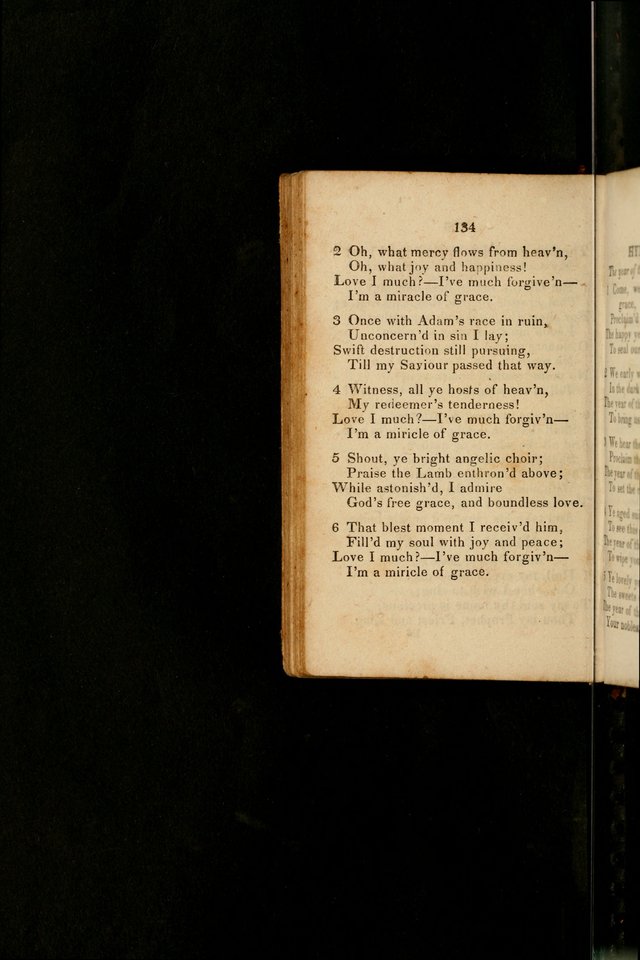 134
2 Oh, what mercy flows from heav'n,
Oh, what joy and happiness!
Love I much?—I've much forgive'n—
I'm a miracle of grace.
3 Once with Adam's race in ruin,
Unconcern'd in sin I lay;
Swift destruction still pursuing,
Till my Saviour passed that way.
4 Witness, all ye hosts of heav'n,
My redeemer's tenderness!
Love I much?—I've much forgiv'n—
I'm a miricle of grace.
5 Shout, ye bright angelic choir;
Praise the Lamb enthron'd above;
While astonish'd, I admire
God's free grace, and boundless love.
6 That blest moment I receiv'd him,
Fill'd my soul with joy and peace;
Love I much?—I've much forgiv'n—
I'm a miricle of grace.
The year of
1 Come,
grace,
Proclaim'd
The happy
To seal our
2 We early
In the dark
The year of
To bring us
3 We hear
Proclaim
The year of
To set the
4 Ye aged
To see this
The year of
To wipe your
5 Ye lovely
The sweets
The year of
Your